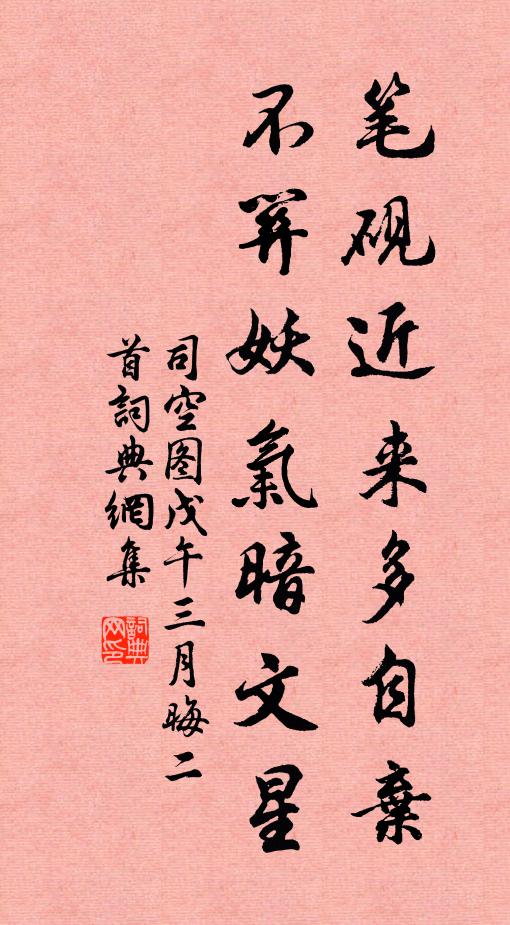 笔硯近来多自棄
不關妖氣暗文星
司空图戊午三月晦二
首詞典網集
詞典
网印